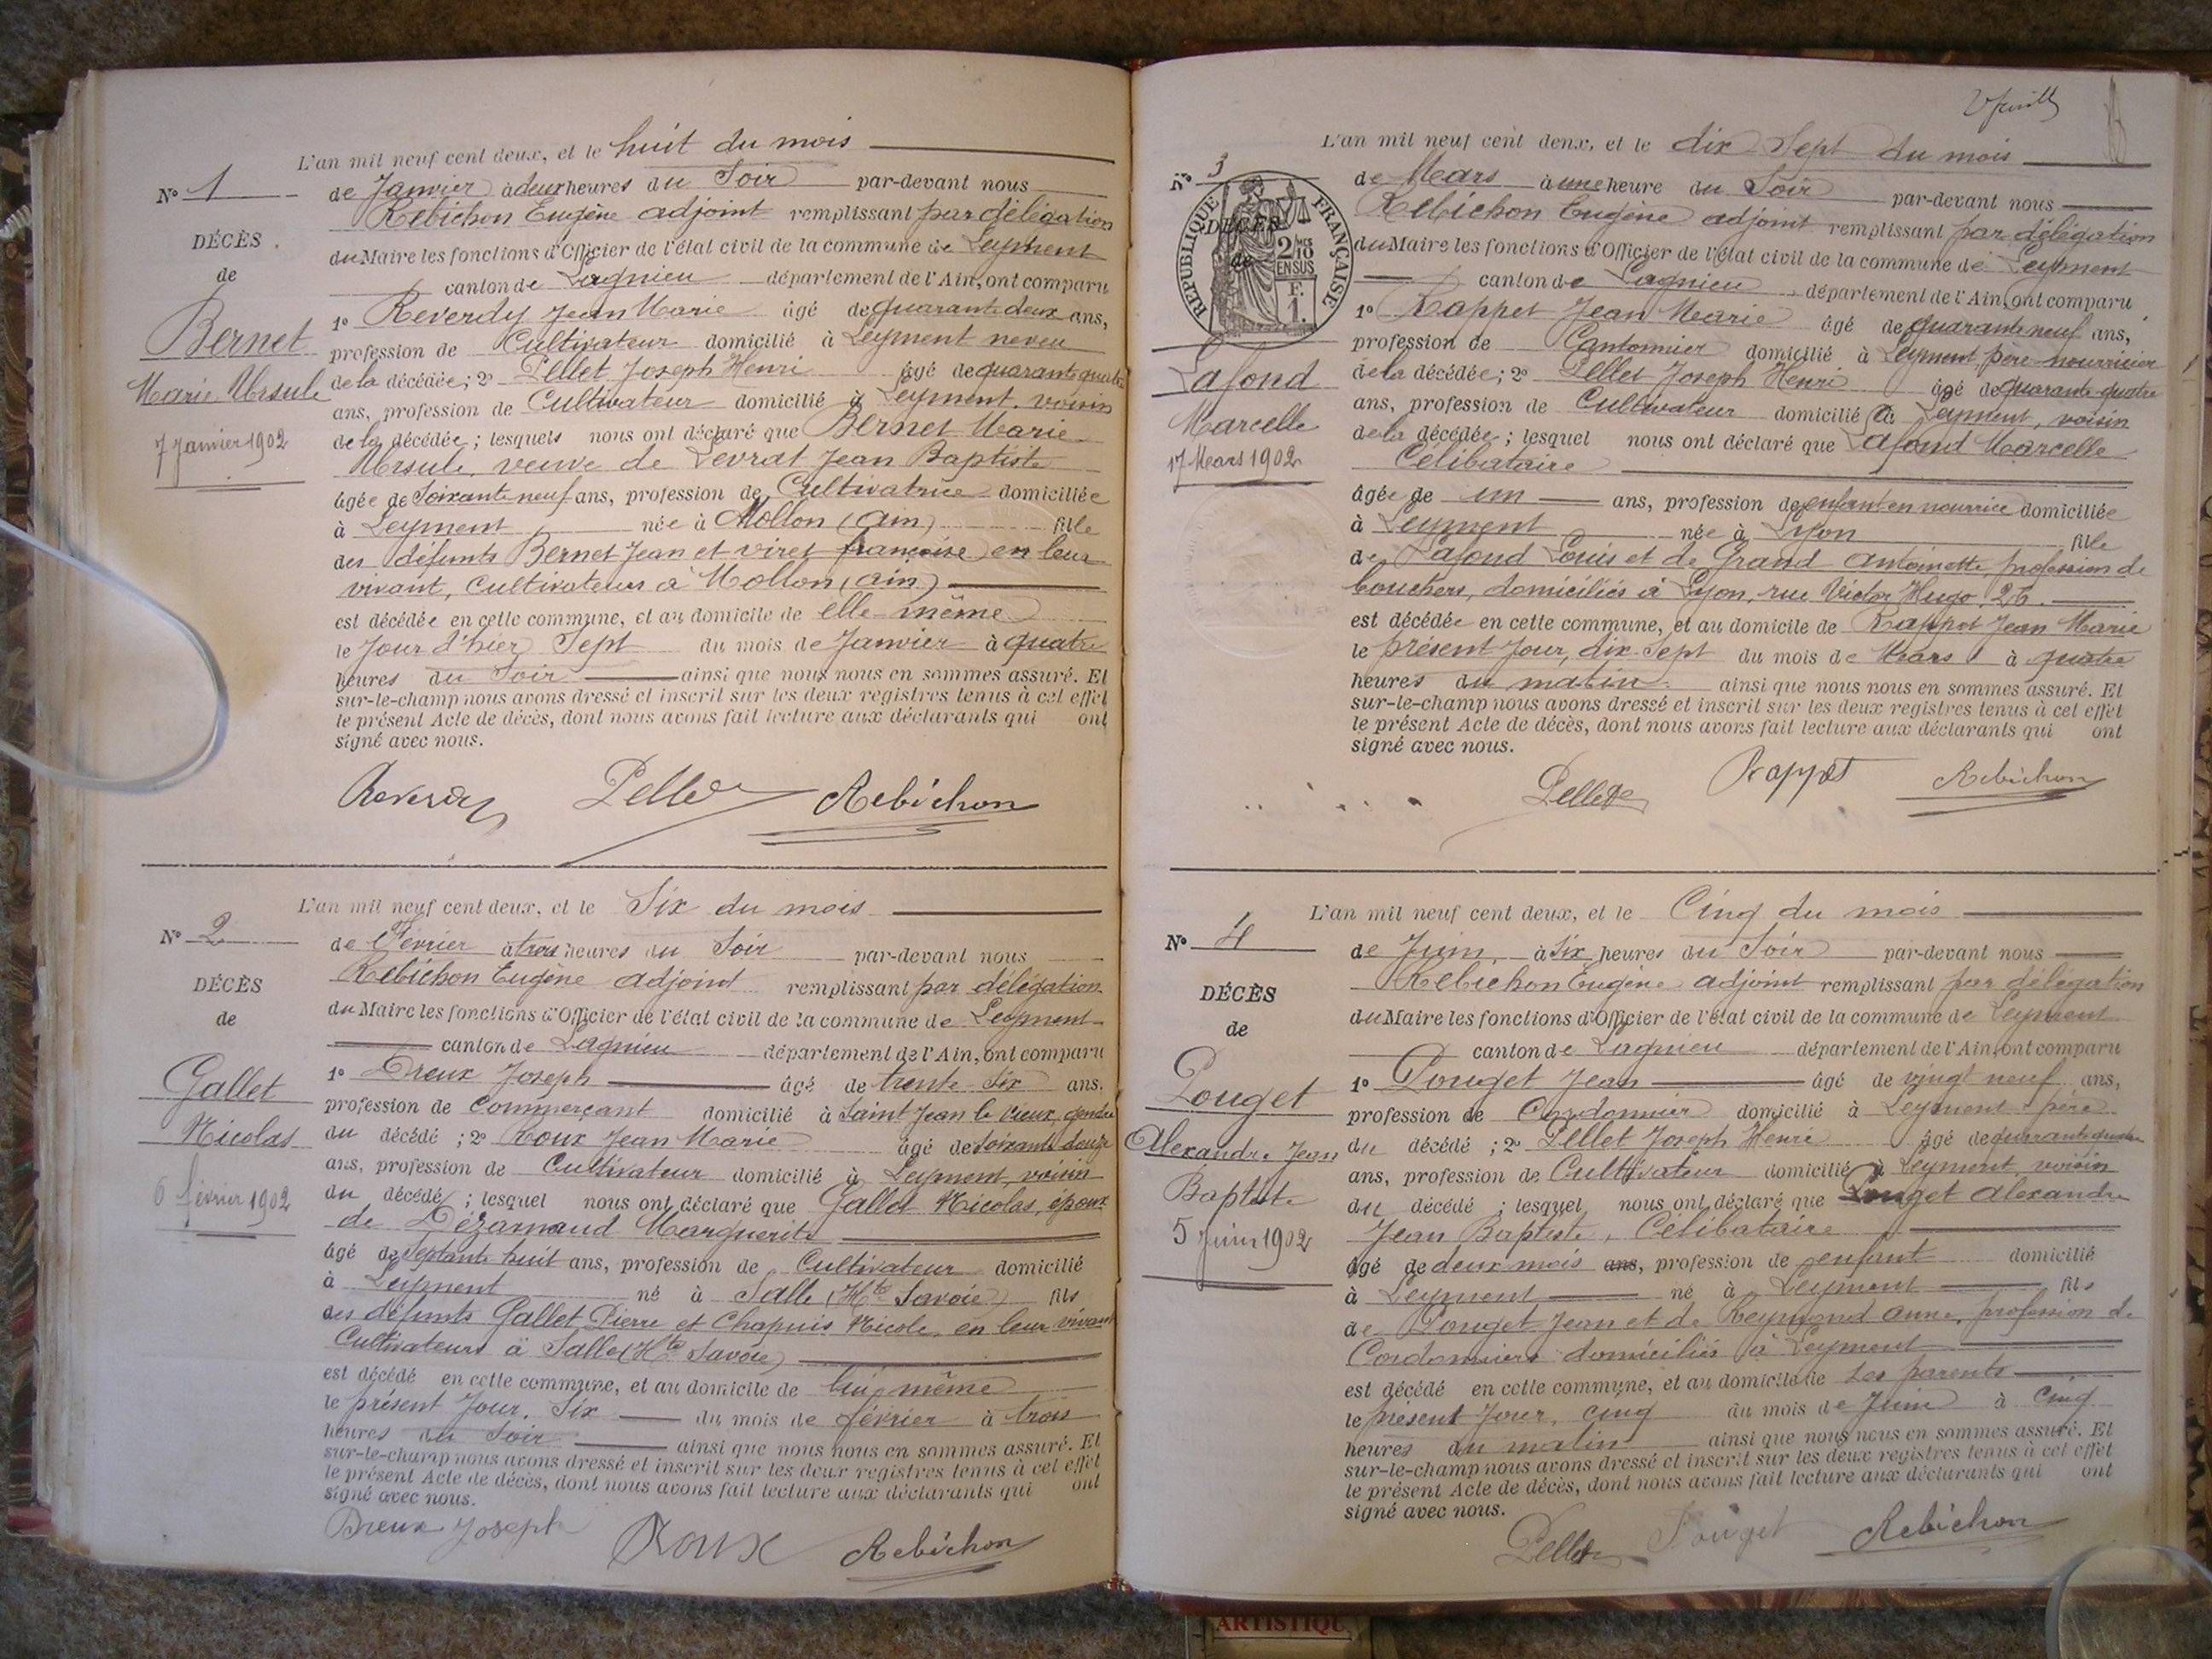 L'an mil neuf cent deux, et le huit du mois
N° 1
de Janvier à deux heures du Soir par-devant nous
Rebichon Eugène adjoint remplissant par délégation
DÉCÈS
du Maire les fonctions d'Officier de l'état civil de la commune de Leyment
de
canton de Lagnieu département de l'Ain, ont comparu
1° Reverdy Jean Marie âgé de quarante deux ans,
Bernet
profession de Cultivateur domicilié à Leyment neveu
Marie Ursule
de la décédée; 2° Pellet Joseph Henri âgé de quarante quatre
ans, profession de Cultivateur domicilié à Leyment, voisin
7 Janvier 1902
de la décédée; lesquels nous ont déclaré que Bernet Marie
Ursule, veuve de Levrat Jean Baptiste
âgée de Soixante neuf ans, profession de Cultivatrice domiciliée
à Leyment née à Mollon (Ain) fille
des défunts Bernet Jean et Viret françoise en leur
vivant, Cultivateurs à Mollon (Ain)
est décédée en cette commune, et au domicile de elle même
le Jour d'hier Sept du mois de Janvier à quatre
heures du Soir ainsi que nous nous en sommes assuré. Et
sur-le-champ nous avons dressé et inscrit sur les deux registres tenus à cet effet
le présent Acte de décès, dont nous avons fait lecture aux déclarants qui ont
signé avec nous.
Reverdy Pellet Rebichon
L'an mil neuf cent deux, et le Six du mois
N° 2
de Février à trois heures du Soir par-devant nous
Rebichon Eugène adjoint remplissant par délégation
DÉCÈS
du Maire les fonctions d'Officier de l'état civil de la commune de Leyment
de
canton de Lagnieu département de l'Ain, ont comparu
1° Dreux Joseph âgé de trente Six ans.
Gallet
profession de Commerçant domicilié à Saint Jean le Vieux, gendre
Nicolas
du décédé; 2° Roux Jean Marie âgé de Soixante douze
ans, profession de Cultivateur domicilié à Leyment, voisin
6 février 1902
du décédé; lesquel nous ont déclaré que Gallet Nicolas, époux
de Dézarnaud Marguerite
âgé de Septante huit ans, profession de Cultivateur domicilié
à Leyment né à Salle (Hte Savoie) fils
des défunts Gallet Pierre et Chapuis Nicole, en leur vivant
Cultivateurs à Salle (Hte Savoie)
est décédé en cette commune, et au domicile de lui même
le présent Jour, Six du mois de février à trois
heures du Soir ainsi que nous nous en sommes assuré. Et
sur-le-champ nous avons dressé et inscrit sur les deux registres tenus à cet effet
le présent Acte de décès, dont nous avons fait lecture aux déclarants qui ont
signé avec nous.
Dreux Joseph Roux Rebichon
L'an mil neuf cent deux, et le dix Sept du mois
N° 3
de Mars à une heure du Soir par-devant nous
Rebichon Eugène adjoint remplissant par délégation
DÉCÈS
de
RÉPUBLIQUE FRANÇAISE
2/10 EN SUS
F. 1.
du Maire les fonctions d'Officier de l'état civil de la commune de Leyment
canton de Lagnieu département de l'Ain, ont comparu
1° Rappet Jean Marie âgé de quarante neuf ans,
profession de Cantonnier domicilié à Leyment, père nourricier
Lafond
de la décédée; 2° Pellet Joseph Henri âgé de quarante quatre
Marcelle
ans, profession de Cultivateur domicilié à Leyment, voisin
de la décédée; lesquel nous ont déclaré que Lafond Marcelle
17 Mars 1902
Célibataire
âgée de un ans, profession de enfant en nourrice domiciliée
à Leyment née à Lyon fille
de Lafond Louis et de Grand Antoinette, profession de
bouchers, domiciliés à Lyon, rue Victor Hugo, 26.
est décédée en cette commune, et au domicile de Rappet Jean Marie
le présent Jour, dix Sept du mois de Mars à quatre
heures du matin ainsi que nous nous en sommes assuré. Et
sur-le-champ nous avons dressé et inscrit sur les deux registres tenus à cet effet
le présent Acte de décès, dont nous avons fait lecture aux déclarants qui ont
signé avec nous.
Pellet Rappet Rebichon
L'an mil neuf cent deux, et le Cinq du mois
N° 4
de Juin, à Six heures du Soir par-devant nous
Rebichon Eugène adjoint remplissant par délégation
DÉCÈS
du Maire les fonctions d'Officier de l'état civil de la commune de Leyment
de
canton de Lagnieu département de l'Ain, ont comparu
1° Pouget Jean âgé de vingt neuf ans,
Pouget
profession de Cordonnier domicilié à Leyment père
Alexandre Jean
du décédé; 2° Pellet Joseph Henri âgé de quarante quatre
ans, profession de Cultivateur domicilié à Leyment, voisin
Baptiste
du décédé; lesquel nous ont déclaré que Pouget Alexandre
5 Juin 1902
Jean Baptiste, Célibataire
âgé de deux mois ans, profession de enfant domicilié
à Leyment né à Leyment fils
de Pouget Jean et de Reymond Anne, profession de
Cordonniers domiciliés à Leyment
est décédé en cette commune, et au domicile de Les parents
le présent Jour, cinq du mois de Juin à Cinq
heures du matin ainsi que nous nous en sommes assuré. Et
sur-le-champ nous avons dressé et inscrit sur les deux registres tenus à cet effet
le présent Acte de décès, dont nous avons fait lecture aux déclarants qui ont
signé avec nous.
Pellet Pouget Rebichon
ARTISTIQU